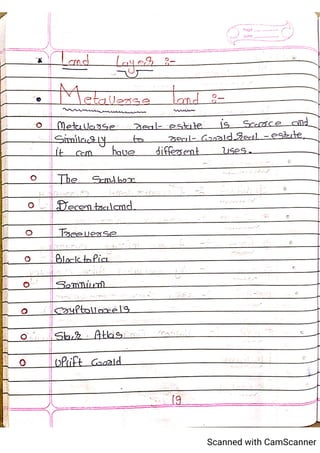 * Land Layer :-
• Metaverse land :-
o Metaverse real-estate is Scarce and
Similarly to real-world real-estate,
it can have different uses.
o The Sandbox
o Decentraland.
o Treeverse
o Blocktopia
o Somnium
o Cryptovoxels
o Star Atlas
o Uplift World
19
Scanned with CamScanner